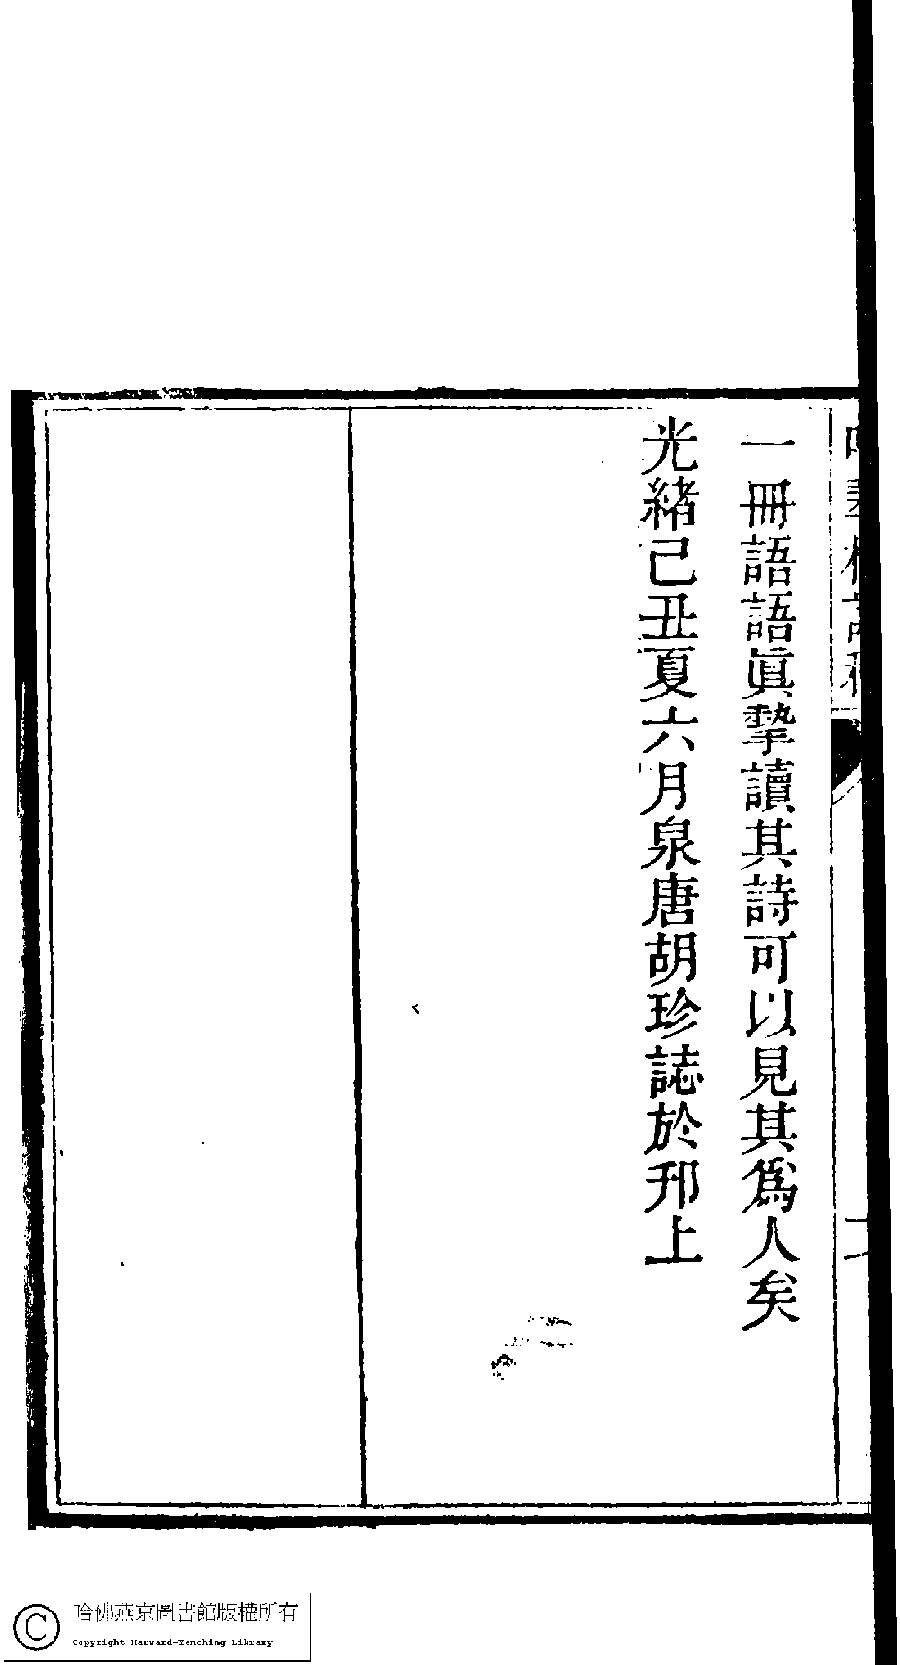 一冊語語眞摯讀其詩可以見其爲人矣
光緒己丑夏六月泉唐胡珍誌於邗上
哈佛燕京圖書館版權所有
Copyright Harvard-Yenching Library